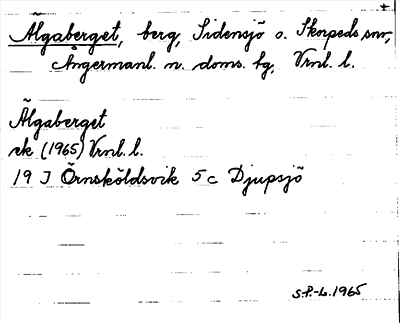 Älgaberget, berg, Sidensjö o. Skorpeds snr,
Ångermanl. n. doms. hg, Vrnl. l.
Älgaberget
ek (1965) Vrnl. l.
19 J Örnsköldsvik 5 c Djupsjö
S.P.-L. 1965